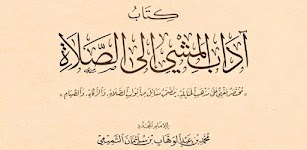 كتاب
آداب المشي إلى الصلاة
مختصر فقهي على مذهب الحنابلة، يتضمن مسائل من أبواب الصلاة، والزكاة، والصيام
للإمام المجدد
محمد بن عبد الوهاب بن سليمان التميمي